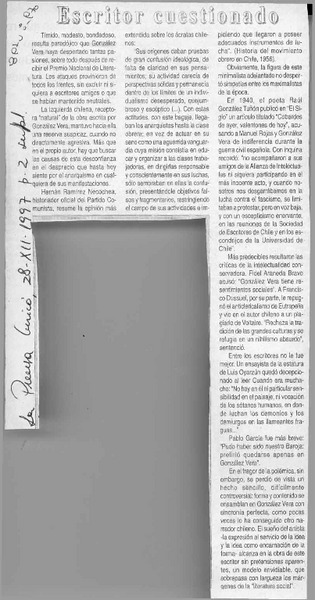 Escritor cuestionado
Tímido, modesto, bondadoso,
resulta paradójico que González
Vera haya despertado tantas pa-
siones, sobre todo después de re-
cibir el Premio Nacional de Litera-
tura. Los ataques provinieron de
todos los frentes, sin excluir ni si-
quiera a escritores amigos o que
se habían mantenido neutrales.
La izquierda chilena, recepto-
ra "natural" de la obra escrita por
González Vera, mantuvo hacia ella
una reserva suspicaz, cuando no
directamente agresiva. Más que
en el propio autor, hay que buscar
las causas de esta disconfianza
en el desprecio que hasta hoy
siente por el anarquismo en cual-
quiera de sus manifestaciones.
Hernán Ramírez Necochea,
historiador oficial del Partido Co-
munista, resume la opinión más
extendida sobre los ácratas chile-
nos:
"Sus orígenes caban pruebas
de gran confusión ideológica, de
falta de claridad en sus pensa-
mientos; su actividad carecía de
perspectivas sólidas y permanecía
dentro de los límites de un indivi-
dualismo desesperado, quejum-
broso y escéptico (...). Con estas
actitudes, con este bagaje, llega-
ban los anarquistas hasta la clase
obrera; en vez de actuar en su
seno como una aguerrida vanguar-
dia cuya misión estaba en educar,
en organizar y las clases trabaja-
doras, en dirigirlas responsable
y conscientemente en sus luchas,
sólo sembraban en ellas la confu-
sión, presentándole objetivos fal-
sos y fragmentarios, restringiendo
el campo de sus actividades e im-
pidiendo que llegaron a poseer
adecuados instrumentos de lu-
cha". (Historia del movimiento
obrero en Chile, 1956).
Obviamente, la figura de este
minimalista adelantado no desper-
tó simpatías entre los maximalistas
de la época.
En 1940, el poeta Raúl
González Tuñón publicó en "El Si-
glo" un artículo titulado "Cobardes
de ayer, valentones de hoy", acu-
sando a Manuel Rojas y González
Vera de indiferencia durante la
guerra civil española. Con inquina
recordó: "no acompañaron a sus
amigos de la Alianza de Intelectua-
les ni siquiera participando en el
más inocente acto, y cuando no-
sotros nos desgañitábamos en la
lucha contra el fascismo, se limi-
taban a protestar, pero en voz baja,
y con un escepticismo enervante,
en las reuniones de la Sociedad
de Escritores de Chile y en los es-
condrijos de la Universidad de
Chile".
Más predecibles resultaron las
críticas de la intelectualidad con-
servadora. Fidel Araneda Bravo
acusó: "González Vera tiene re-
sentimientos sociales". A Francis-
co Dussuel, por su parte, le repug-
nó el anticlericalismo de Eutrapelia
y vio en el autor chileno a un pla-
giario de Voltaire. "Rechaza la tra-
dición de las grandes culturas y se
refugia en un nihilismo absurdo",
sentenció.
Entre los escritores no le fue
mejor. Un ensayista de la estatura
de Luis Oyarzún quedó decepcio-
nado al leer Cuando era mucha-
cho: "No hay en él ni particular sen-
sibilidad en el paisaje, ni vocación
de los sótanos humanos, en don-
de luchan los demonios y los
demiurgos en las llameantes fra-
guas..."
Pablo García fue más breve:
"Pudo haber sido nuestro Baroja:
prefirió quedarse apenas en
González Vera".
En el fragor de la polémica, sin
embargo, se perdió de vista un
hecho sencillo, difícilmente
controversial: forma y contenido se
ensamblan en González Vera con
sincronía perfecta, como pocas
veces lo ha conseguido otro narra-
dor chileno. El sueño del artista
-la expresión al servicio de la idea
y la idea como encarnación de la
forma- alcanza en la obra de este
escritor sin pretensiones aparen-
tes, un modelo envidiable, que
sobrepasa con largueza los márge-
nes de la "literatura social".
28-XII-1997 p. 2 supl